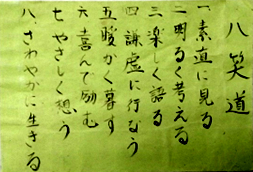 八笑道
一素直に見る
二明るく考える
三楽しく語る
四謙虚に行なう
五暖かく暮す
六喜んで励む
七やさしく想う
八さわやかに生きる